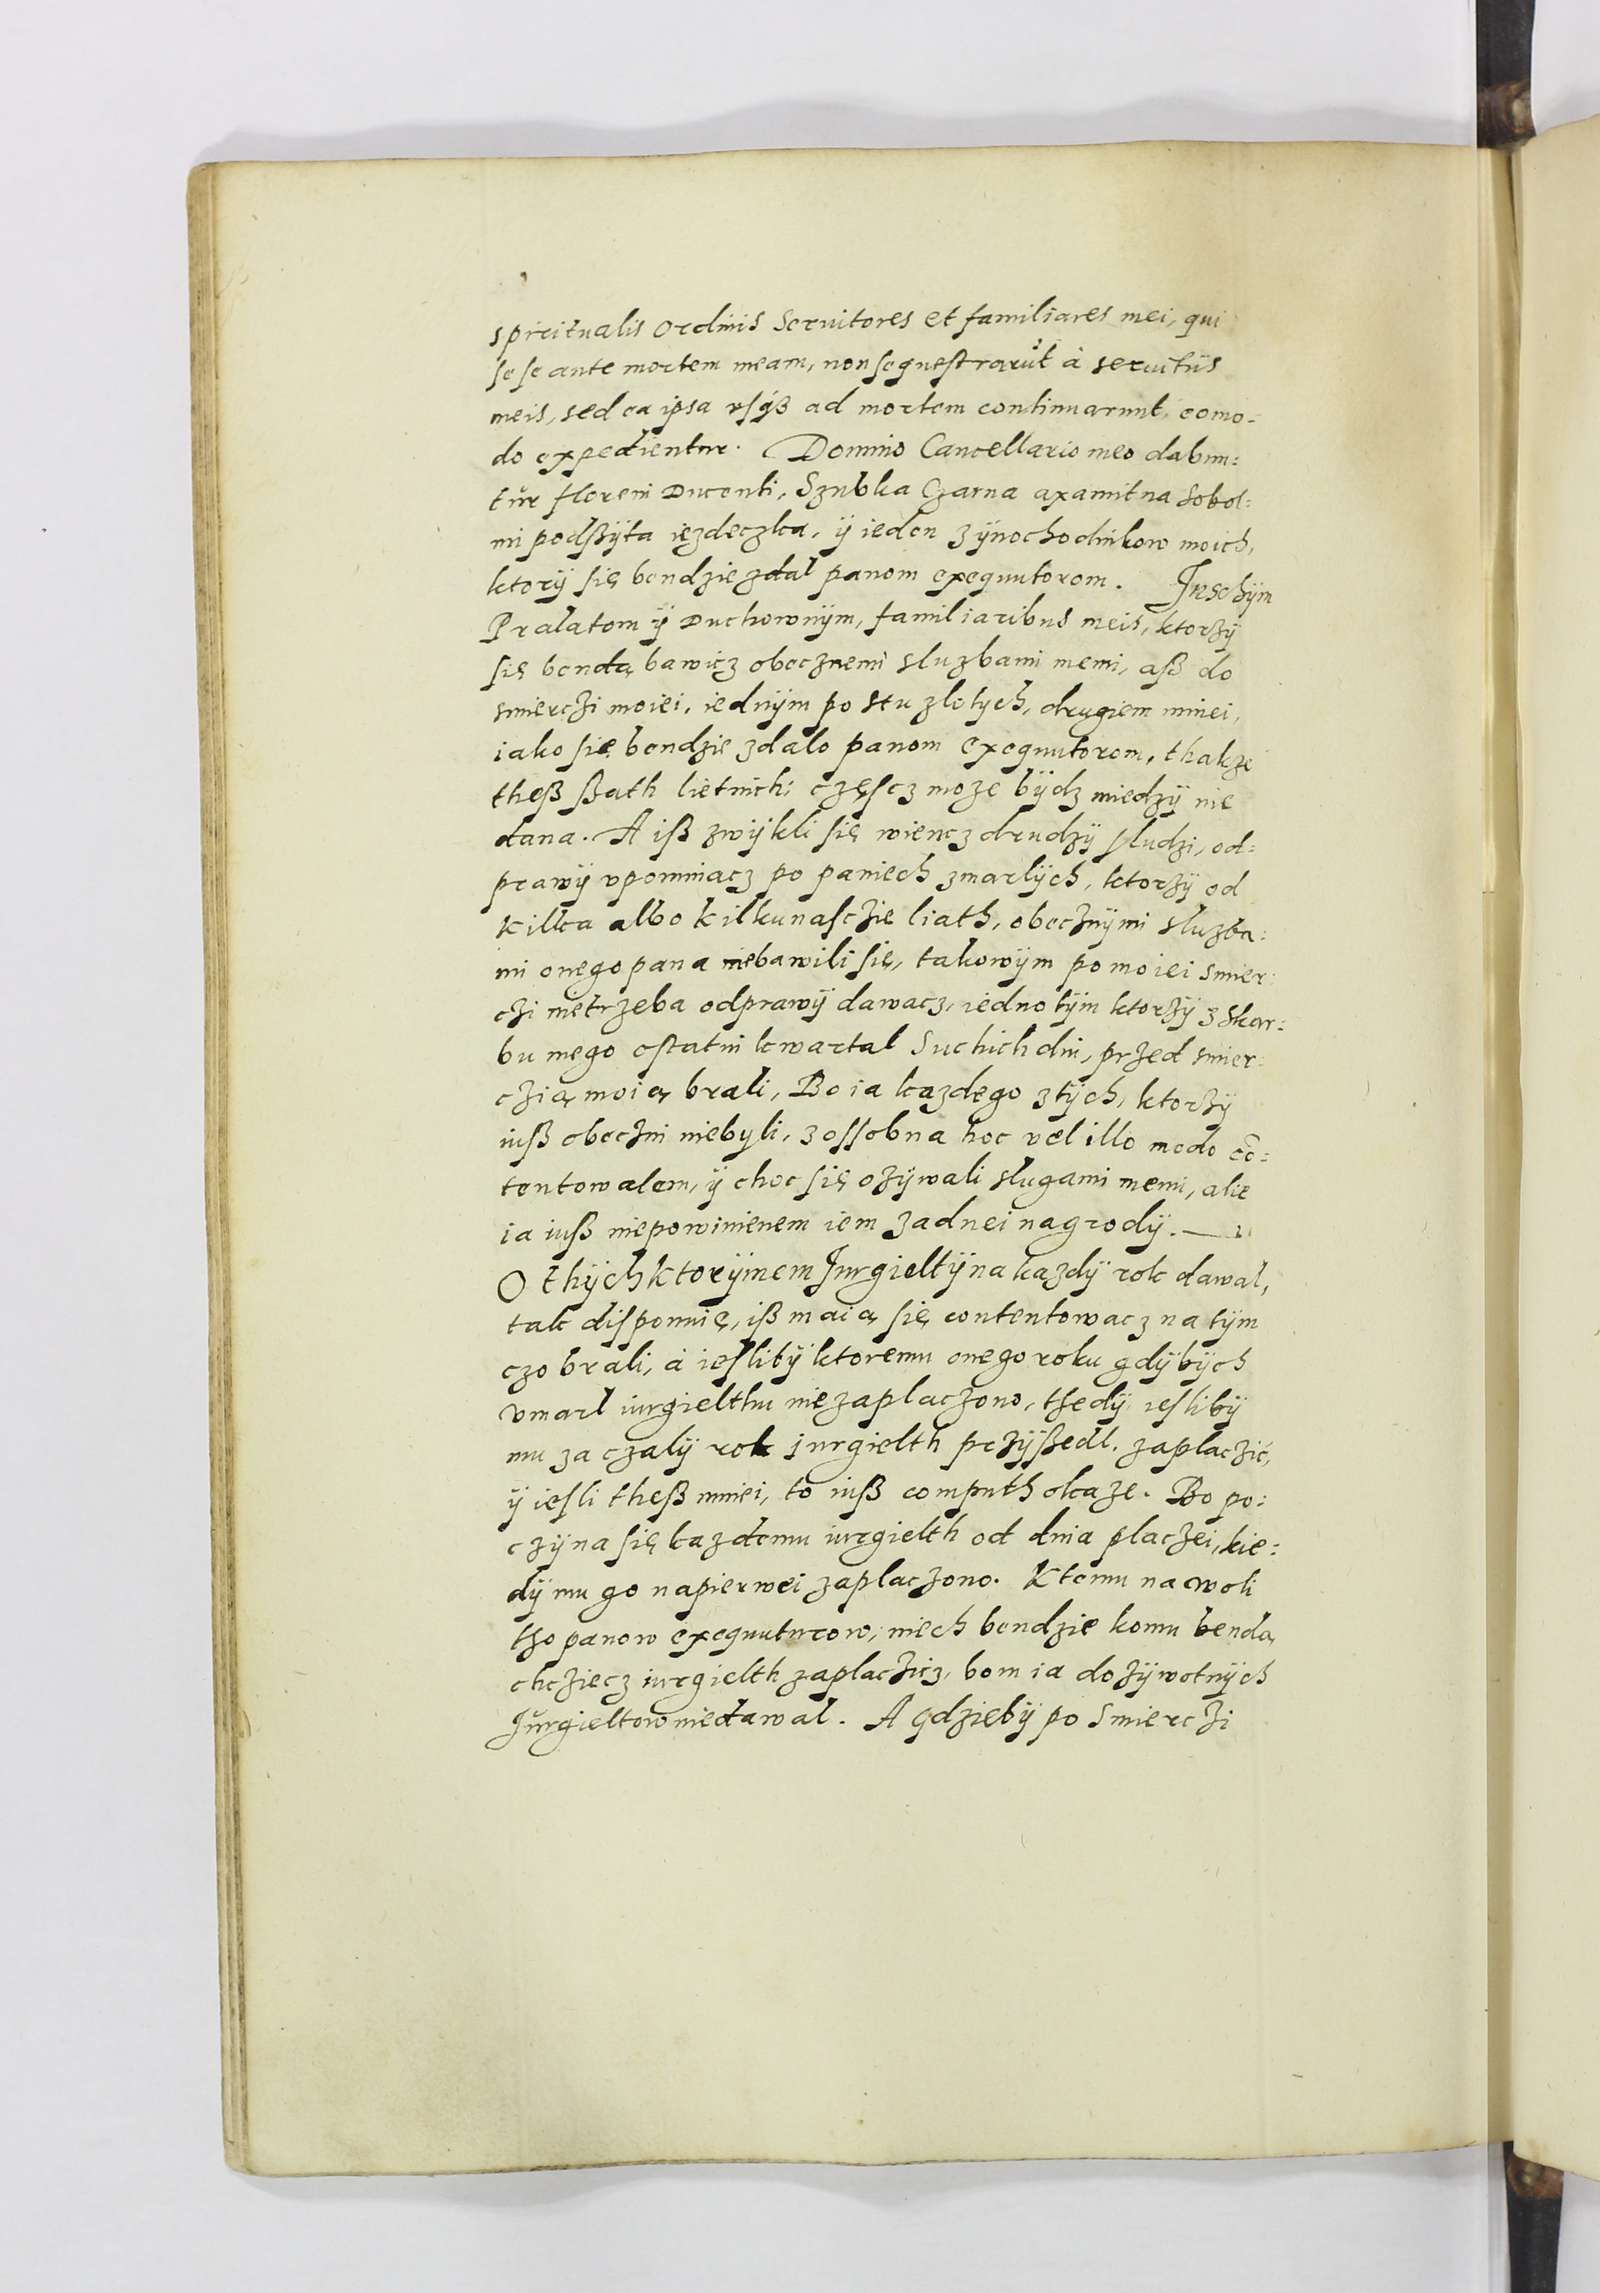 spiritualis Ordinis Servitores et familiares mei, qui
se se ante mortem meam, non sequestrarūt à servitiis
meis, sed ea ipsa usqȝ ad mortem continuarunt, eomo-
do expedientur. Domino Cancellario meo dabun-
tur floreni Ducenti, Szubka Czarna axamitna Sobol-
mi podßÿta iezdeczka, ÿ ieden zÿnochodnikow moich,
ktorÿ się bendzie zdal panom exequutorom. Inschÿm
Pralatom ÿ Duchownÿm, familiaribus meis, ktorzÿ
się benda bawicz obecznemi sluzbami memi, aß do
smierczi moiei, iednÿm po stu zlotych, drugiem mniei,
iako się bendzie zdalo panom exequutorom, thakze
theß ßath lietnich częscz moze bÿdz miedzÿ nie
dana. A iß zwÿkli się wiencz drudzÿ sludzi, od-
prawÿ upominacz po paniech zmarlÿch, ktorzÿ od
kilka albo kilkunasczie liath, obecznÿmi sluzba-
mi onego pana niebawili się, takowÿm po moiei smier-
czi nietrzeba odprawÿ dawacz, iedno tÿm ktorzÿ z Skar-
bu mego ostatni kwartal Suchich dni, przed smier-
czią moią brali, Bo ia kazdego z tÿch, ktorzÿ
iuß obeczni niebyli, z ossobna hoc vel illo modo cō-
tentowalem, ÿ choc się ozÿwali slugami memi, alie
ia iuß niepowinienem iem zadnei nagrodÿ.
O thÿch ktorÿmem Jurgieltÿ na kazdÿ rok dawal,
tak disponuię, iß maią się contentowacz na tÿm
czo brali, à ieslibÿ ktoremu onego roku gdÿbÿch
umarl iurgielthu niezaplaczono, thedÿ ieslibÿ
mu za czalÿ rok jurgielth przÿßedl, zaplaczić,
ÿ iesli theß mniei, to iuß computh okaze. Bo po-
czÿna się kazdemu iurgielth od dnia placzei, kie-
dÿ mu go napierwei zaplaczono. K temu na woli
tho panow exequuturow, niech bendzie komu benda
chcziecz iurgielth zaplaczicz, bom ia dozÿwotnÿch
Jurgieltow niedawal. A gdziebÿ po Smierczi